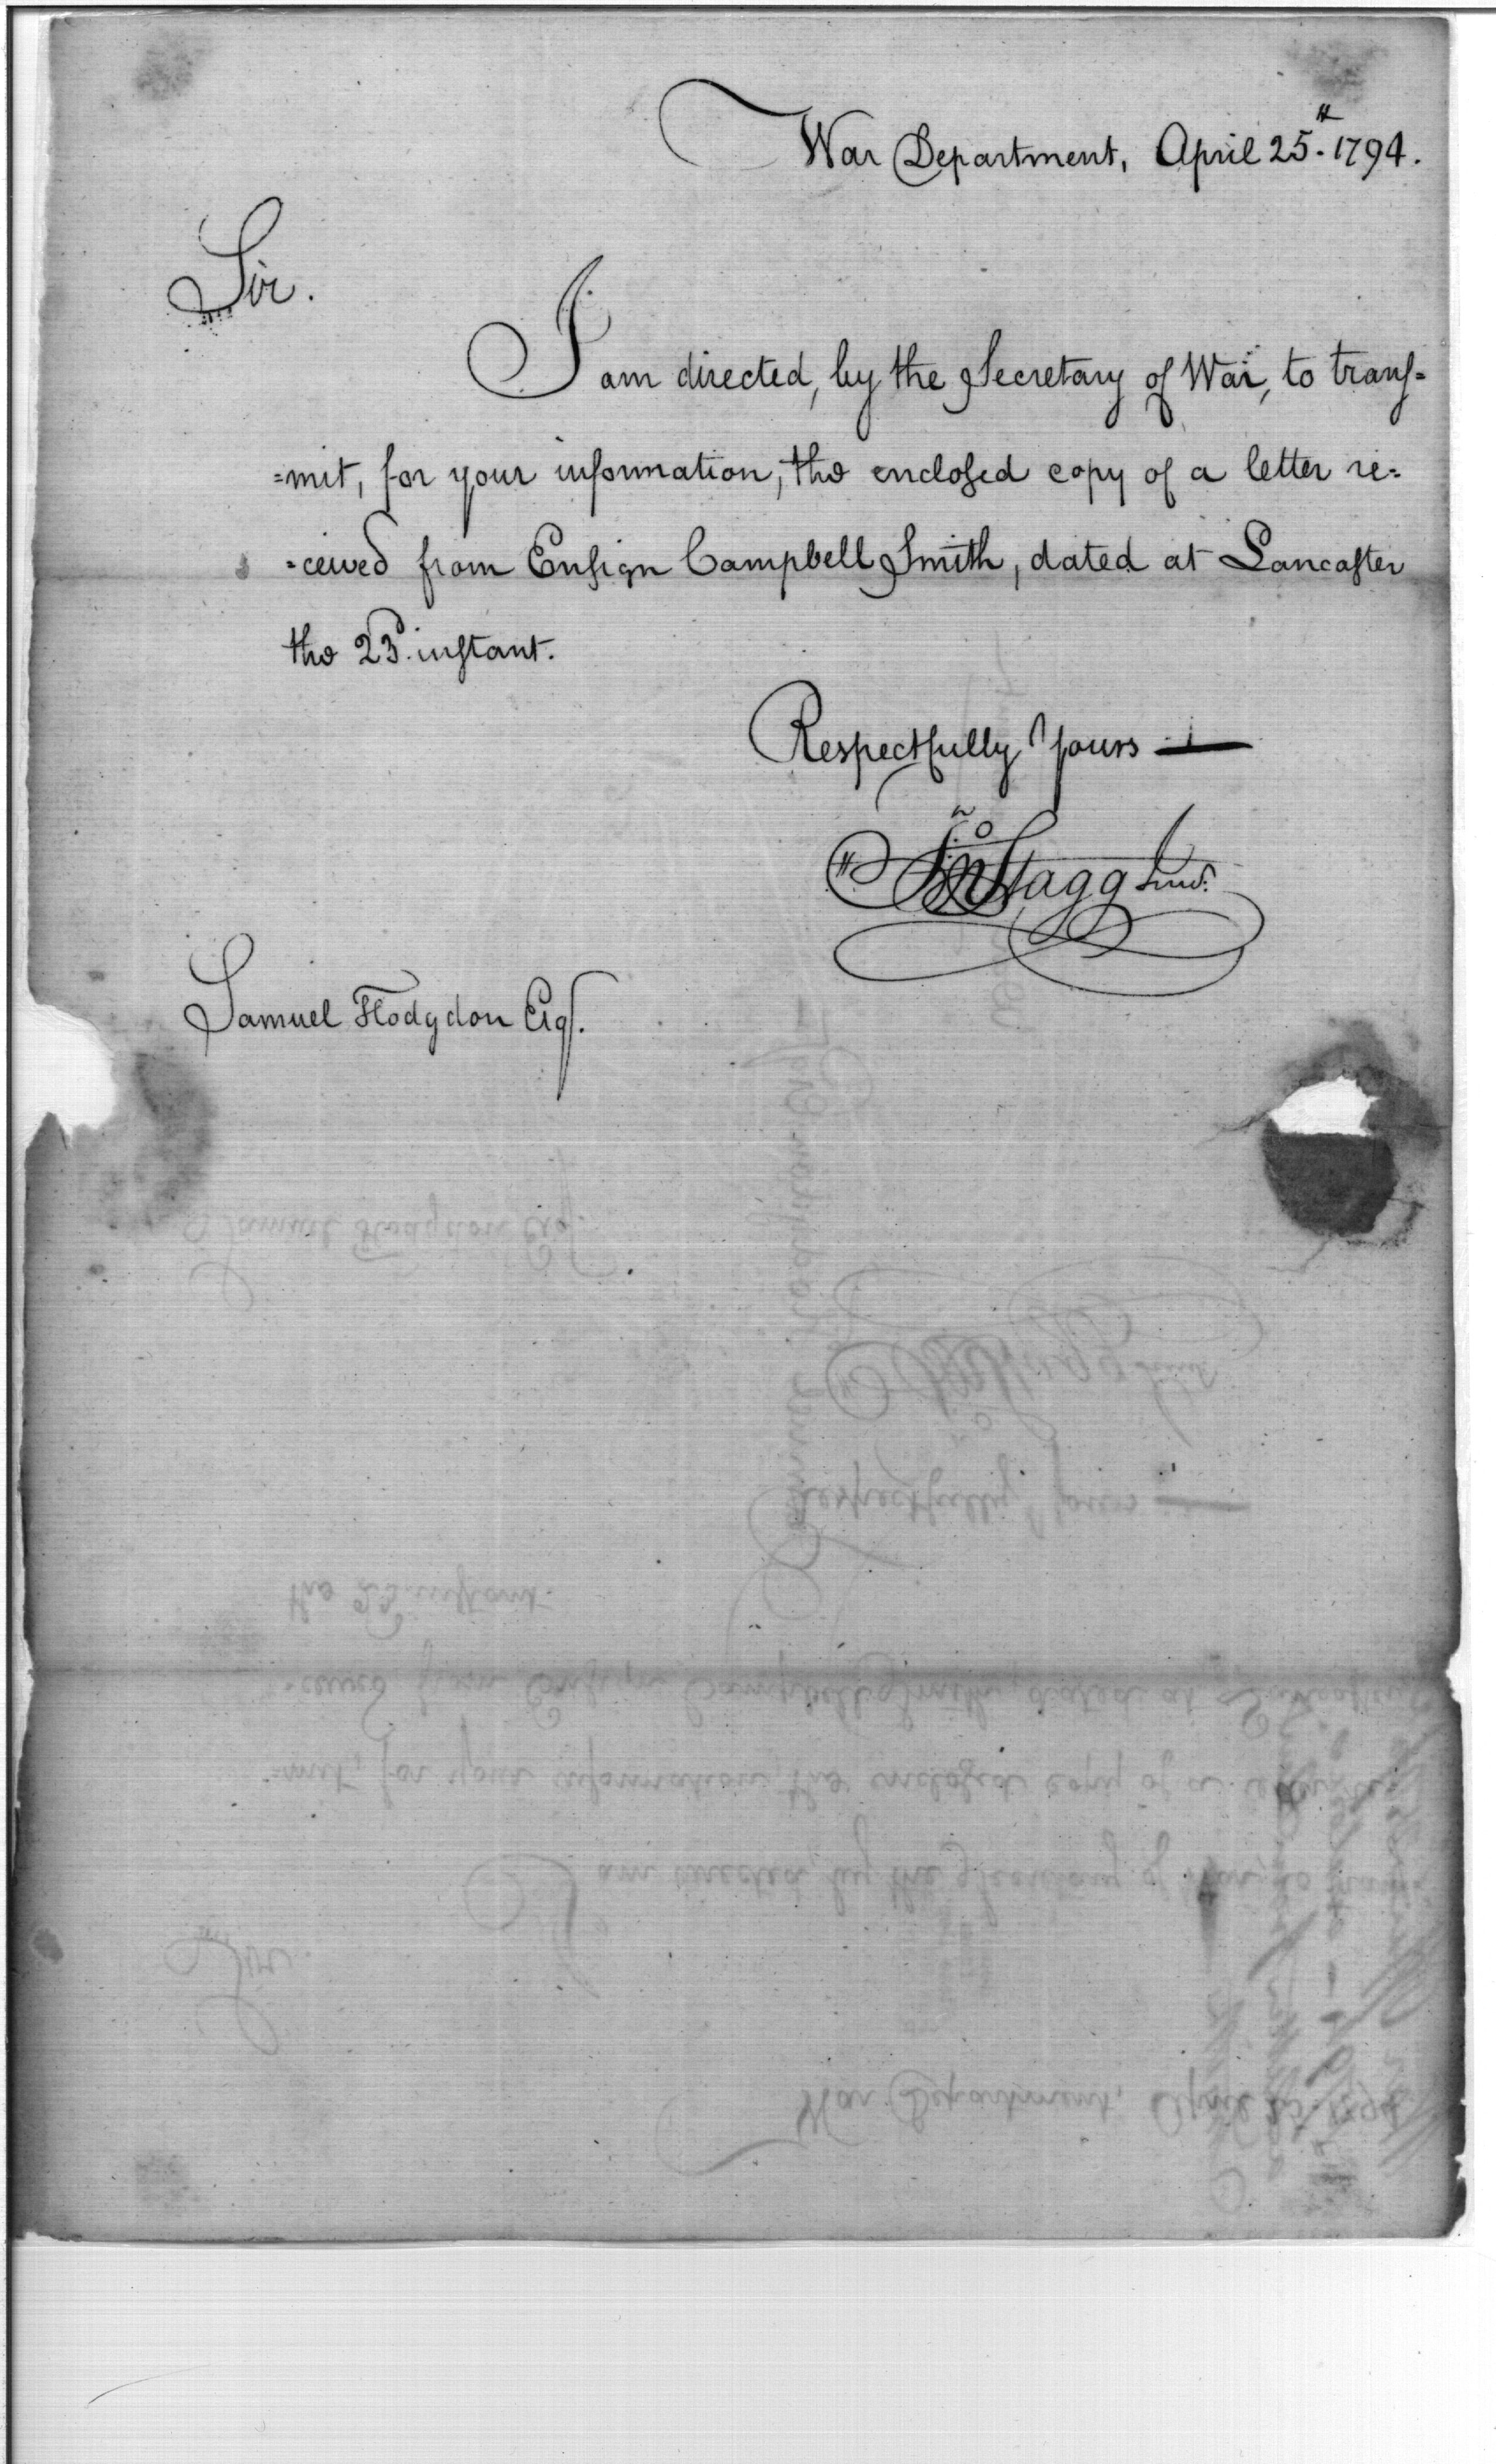 War Department, April 25th. 1794.
Sir.
I am directed, by the Secretary of War, to transſ=
=mit, for your information, the encloſed copy of a letter re=
=ceived from Enſign Campbell Smith, dated at Lancaſter
the 23d. inſtant.
Respectfully Yours —
Jno Stagg Junr.
Samuel Hodgdon Esqr.